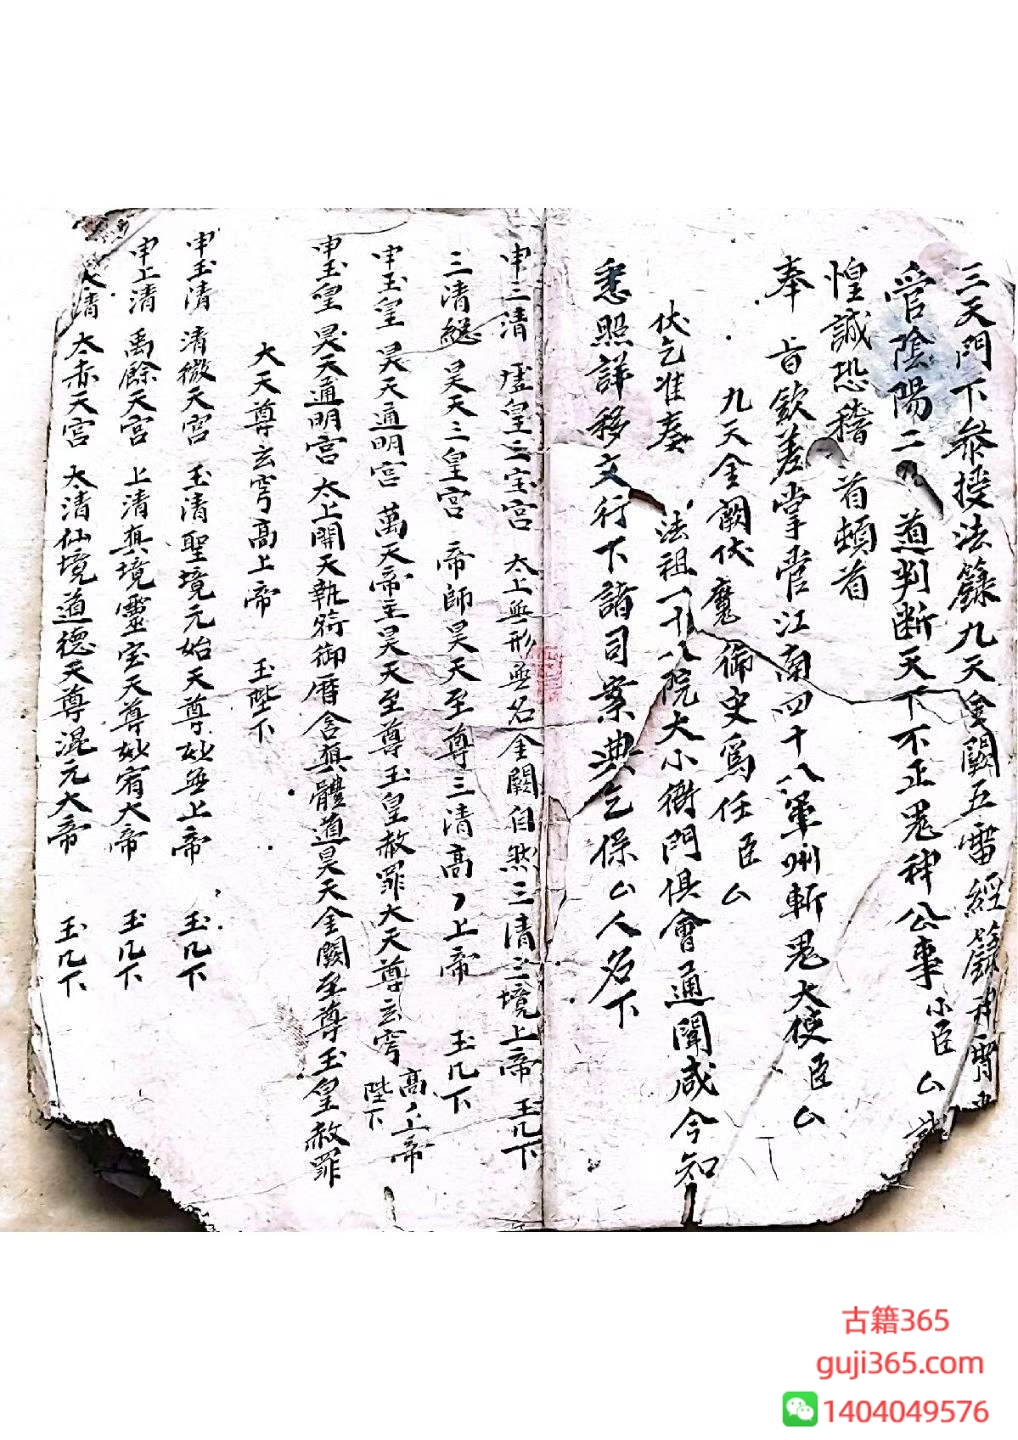 三天門下叅授法籙九天金闕五雷經籙神霄
管陰陽二 道判断天下不正鬼神公事 小臣 厶 誠
惶誠恐稽首頓首
奉 旨欽差掌管江南四十八軍州斬鬼大使臣厶
九天金闕伏魔御史爲任臣厶
伏乞准奏 法祖一十八院大小衙門俱會通聞咸令知
悉照詳移文行下諸司案典乞保厶人名下
申三清 虛皇三宝宮 太上無形無名金闕自然三清三境上帝 玉几下
三清總 昊天三皇宮 帝師昊天至尊三清高〻上帝 玉几下
申玉皇 昊天通明宮 萬天帝主昊天至尊玉皇赦罪大天尊玄穹高上帝 陛下
申玉皇 昊天通明宮 太上開天執符御厝含真體道昊天金闕至尊玉皇赦罪
大天尊玄穹高上帝 玉陛下
申玉清 清微天宮 玉清聖境元始天尊妙無上帝 玉几下
申上清 禹餘天宮 上清真境靈宝天尊妙有大帝 玉几下
太清 太赤天宮 太清仙境道德天尊混元大帝 玉几下
古籍365
guji365.com
1404049576